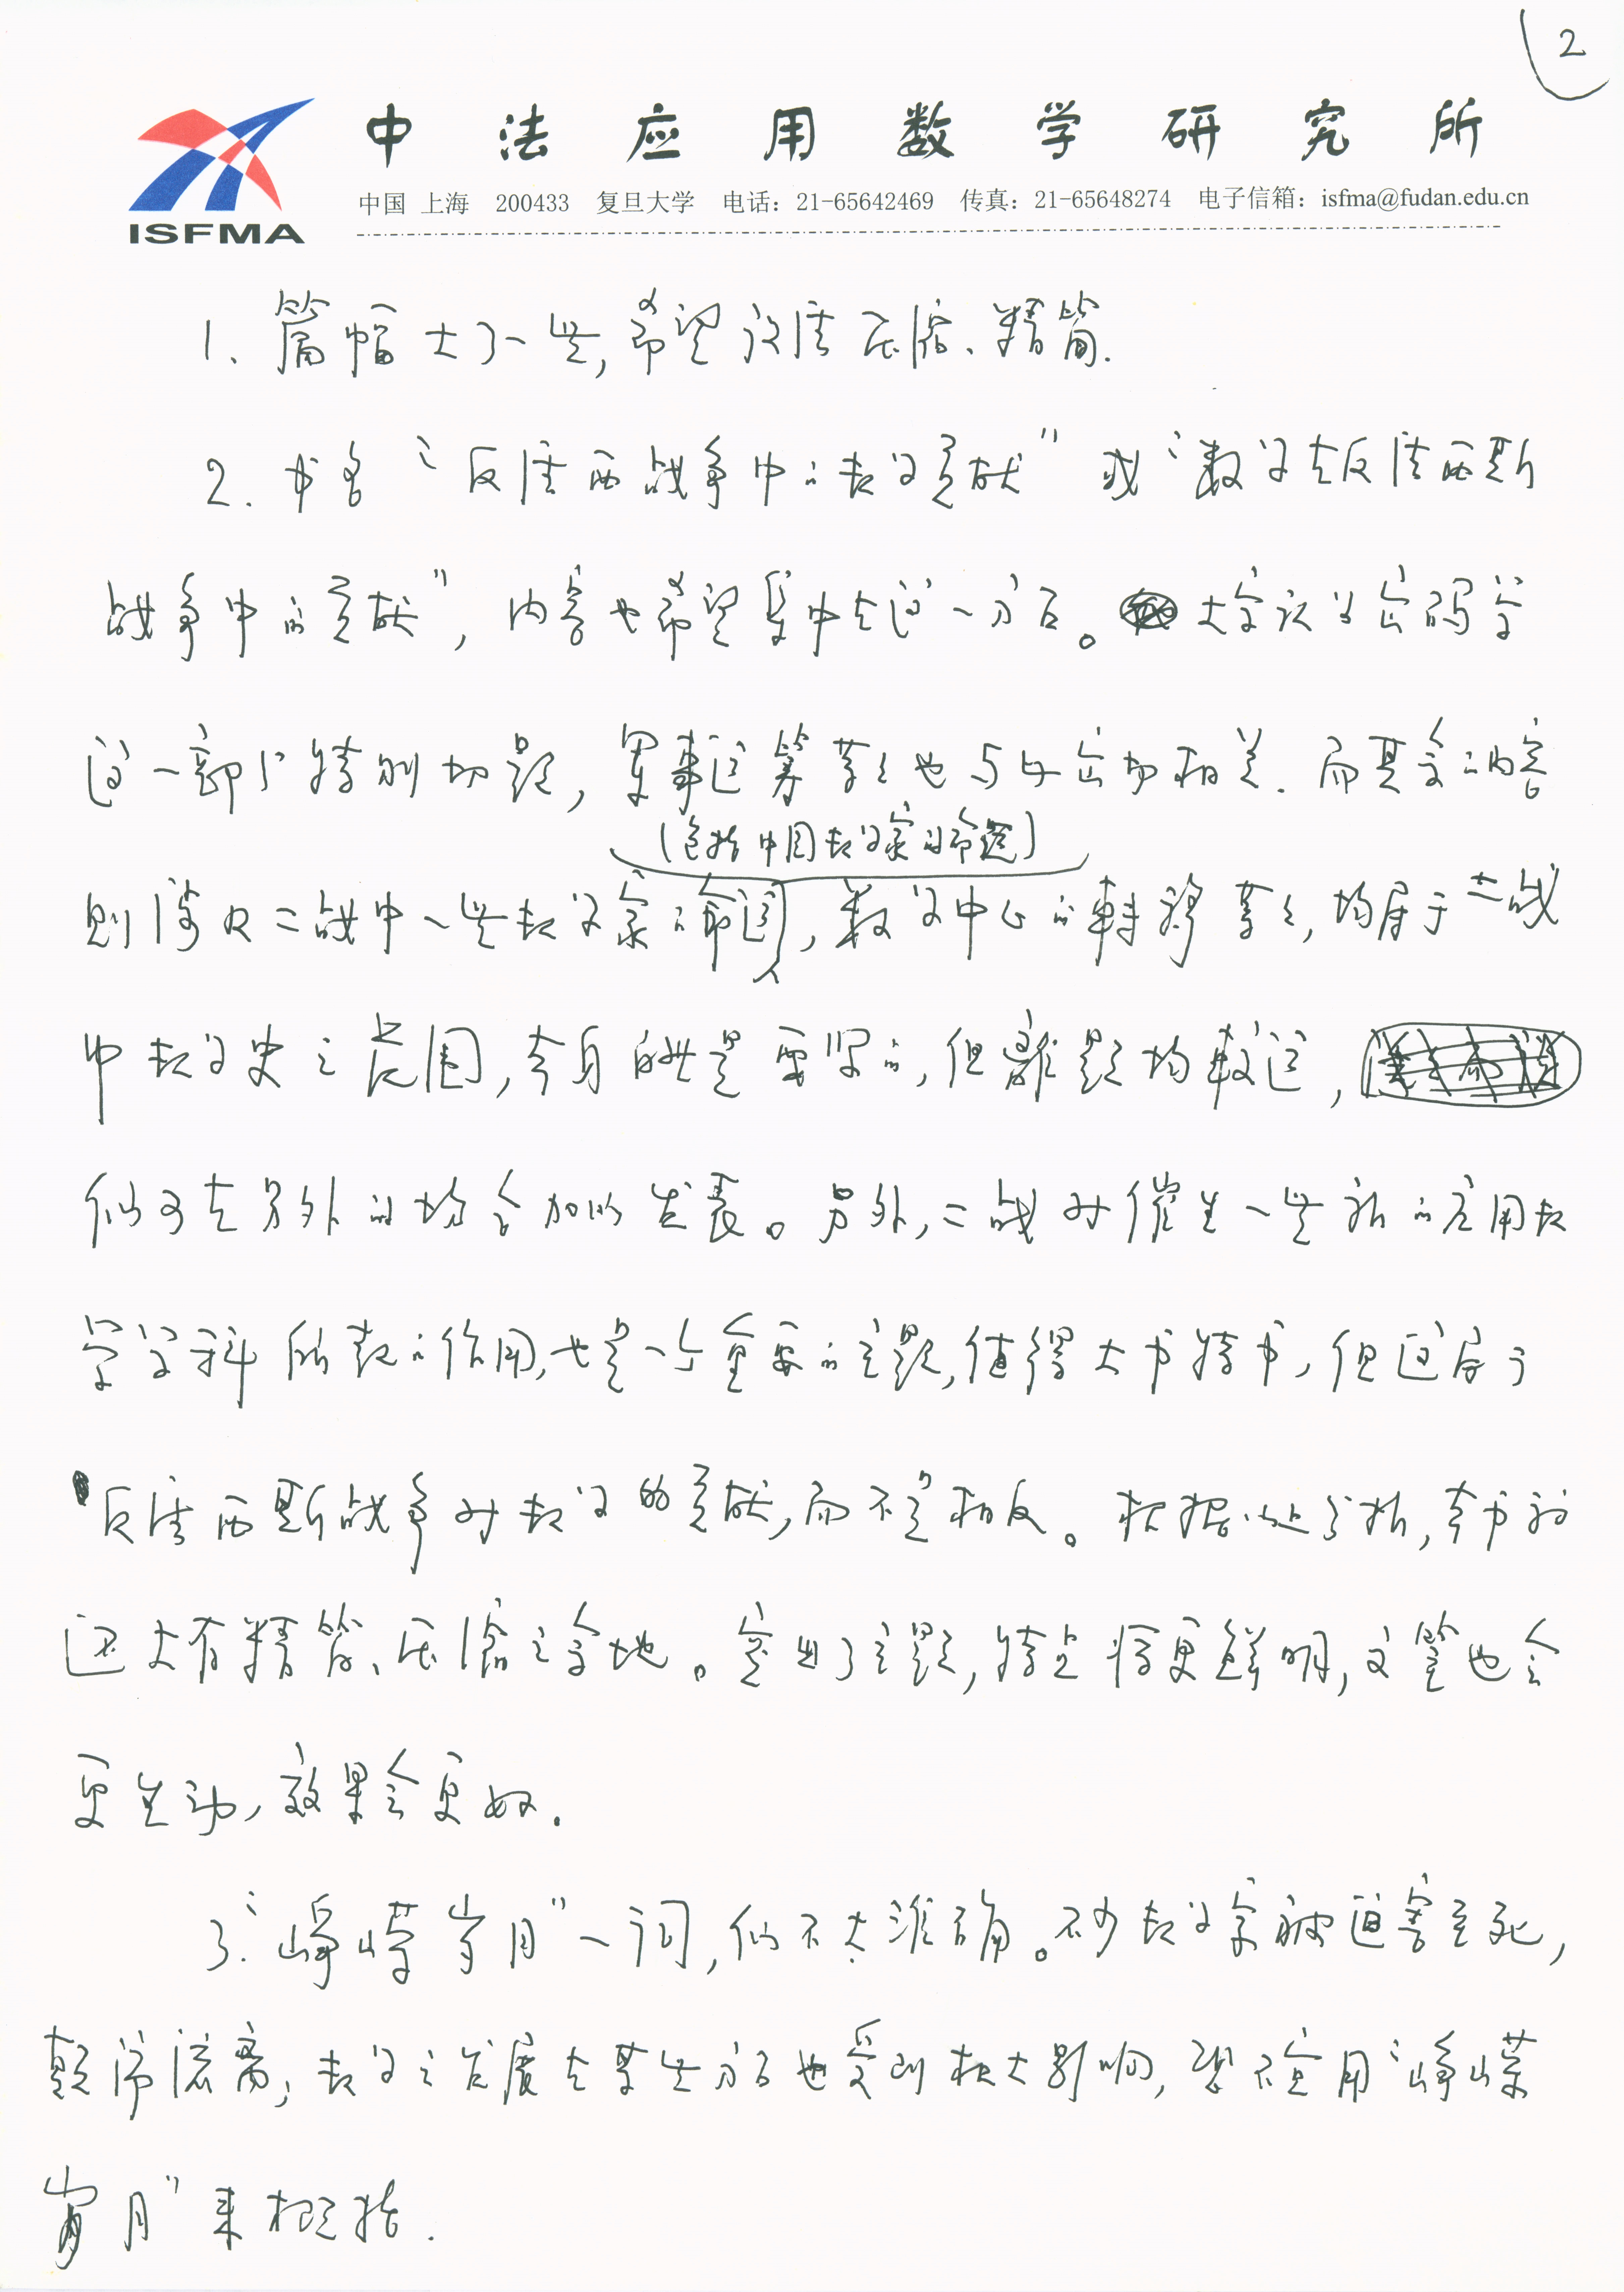 2
中法应用数学研究所
中国 上海 200433 复旦大学 电话: 21-65642469 传真: 21-65648274 电子信箱: isfma@fudan.edu.cn
ISFMA
1. 篇幅大了一些,希望设法压缩、精简.
2. 书名“反法西战争中的数学贡献”或“数学在反法西斯
战争中的贡献”,内容也希望集中在这一方面。大家认为密码学
这一部分特别切题,军事运筹等等也与此密切相关.而其余的内容
(包括中国数学家的命运)
则涉及二战中一些数学家的命运,数学中心的转移等等,均属于二战
中数学史之范围,本身自然是要写的,但离题均较远,
似可在另外的场合加以发表。另外,二战对催生一些新的应用数
学学科所起的作用,也是一个重要的主题,值得大书特书,但这属于
反法西斯战争对数学的贡献,而不是相反。根据以上分析,本书初
还大有精简、压缩之余地。突出了主题,特点将更鲜明,文笔也会
更生动,效果会更好.
3.“峥嵘岁月”一词,似不太准确。不少数学家被迫害至死,
颠沛流离,数学之发展在某些方面也受到极大影响,恐不宜用“峥嵘
岁月”来概括.